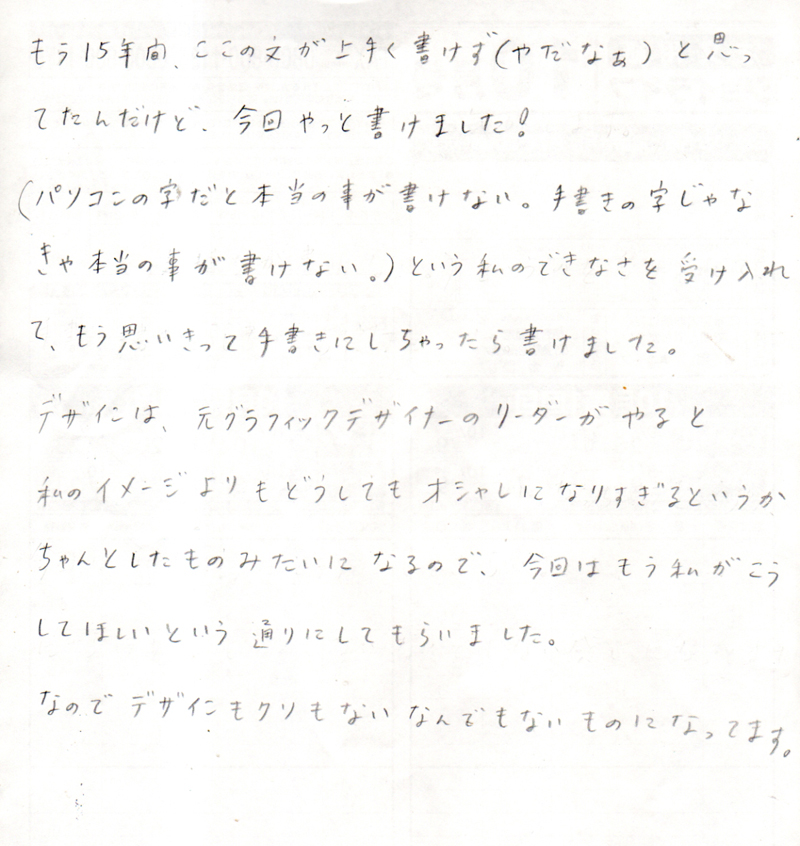 もう15年間、ここの文が上手く書けず(やだなぁ)と思っ
てたんだけど、今回やっと書けました!
(パソコンの字だと本当の事が書けない。手書きの字じゃな
きゃ本当の事が書けない。)という私のできなさを受け入れ
て、もう思いきって手書きにしちゃったら書けました。
デザインは、元グラフィックデザイナーのリーダーがやると
私のイメージよりもどうしてもオシャレになりすぎるというか
ちゃんとしたものみたいになるので、今回はもう私がこう
してほしいという通りにしてもらいました。
なのでデザインもクソもないなんでもないものになってます。